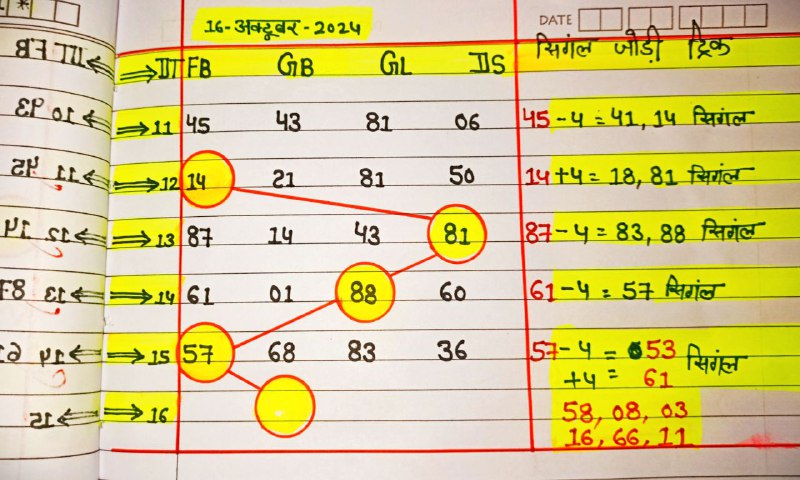 16-अक्टूबर-2024
DATE
सिगंल जोड़ी ट्रिक
⇒ III FB GB GL DS
⇒ 11 45 43 81 06 45-4=41, 14 सिगंल
⇒ 12 14 21 81 50 14+4=18, 81 सिगंल
⇒ 13 87 14 43 81 87-4=83, 88 सिगंल
⇒ 14 61 01 88 60 61-4=57 सिगंल
⇒ 15 57 68 83 36 57-4=53 सिगंल
+4= 61
⇒ 16 58, 08, 03
16, 66, 11